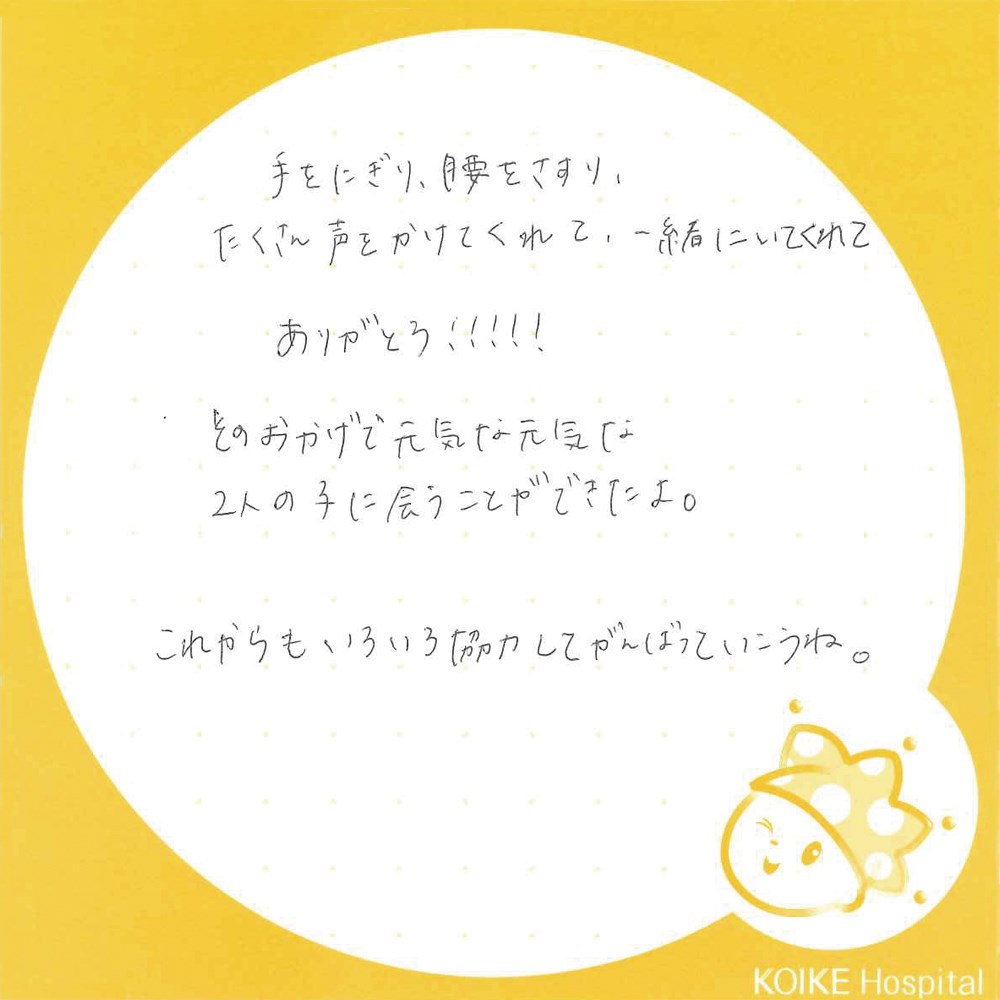 手をにぎり、腰をさすり、
たくさん声をかけてくれて、一緒にいてくれて
ありがとう!!!!!
そのおかげで元気な元気な
2人の子に会うことができたよ。
これからもいろいろ協力してがんばっていこうね。
KOIKE Hospital